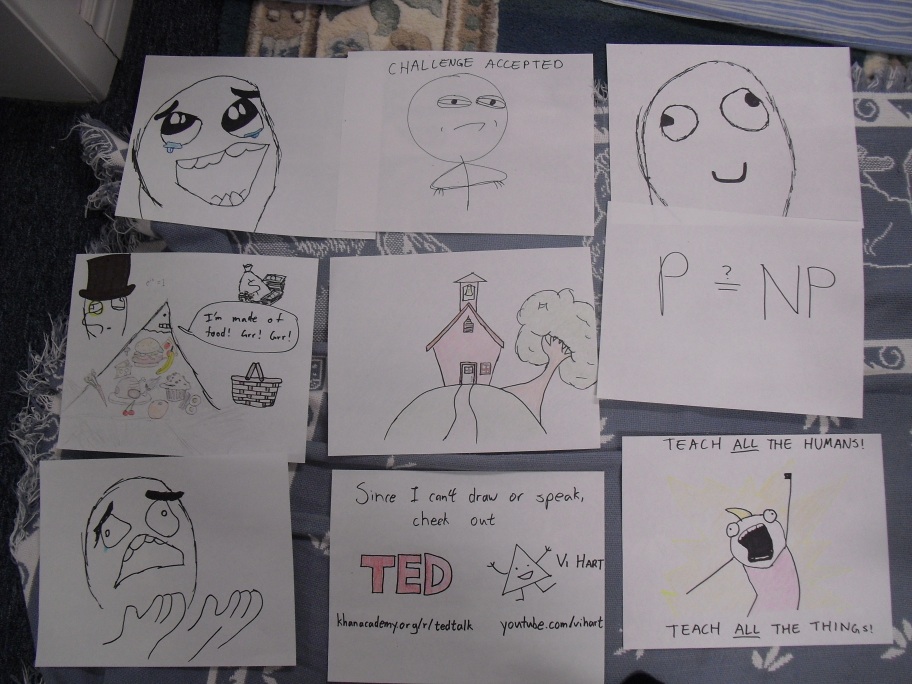 CHALLENGE ACCEPTED
I'm made of
food! Grr! Grr!
P ≟ NP
Since I can't draw or speak,
check out
TED
Vi HART
khanacademy.org/r/tedtalk
youtube.com/vihart
TEACH ALL THE HUMANS!
TEACH ALL THE THINGS!